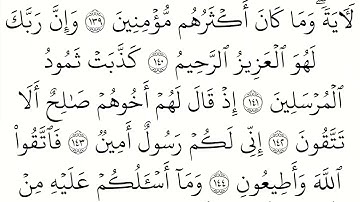 لَأٓيَةٗۖ وَمَا كَانَ أَكۡثَرُهُم مُّؤۡمِنِينَ ١٣٩ وَإِنَّ رَبَّكَ
لَهُوَ ٱلۡعَزِيزُ ٱلرَّحِيمُ ١٤٠ كَذَّبَتۡ ثَمُودُ
ٱلۡمُرۡسَلِينَ ١٤١ إِذۡ قَالَ لَهُمۡ أَخُوهُمۡ صَٰلِحٌ أَلَا
تَتَّقُونَ ١٤٢ إِنِّي لَكُمۡ رَسُولٌ أَمِينٞ ١٤٣ فَٱتَّقُواْ
ٱللَّهَ وَأَطِيعُونِ ١٤٤ وَمَآ أَسۡـَٔلُكُمۡ عَلَيۡهِ مِنۡ